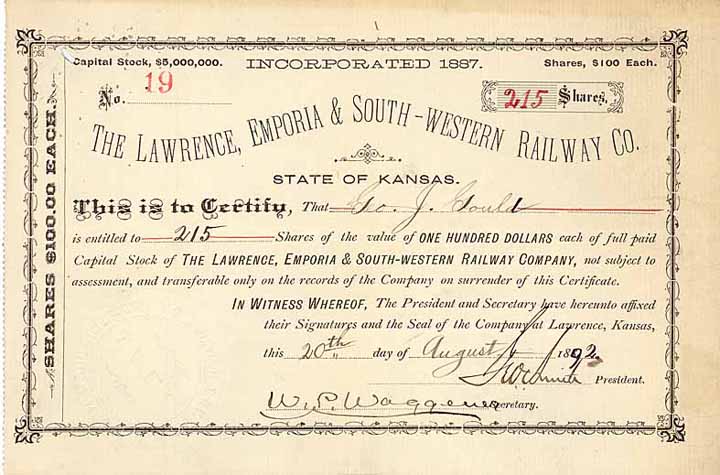 Capital Stock, $5,000,000. INCORPORATED 1887. Shares, $100 Each.
No. 19 215 Shares.
THE LAWRENCE, EMPORIA & SOUTH-WESTERN RAILWAY CO.
STATE OF KANSAS.
This is to Certify, That Geo. J. Gould
is entitled to 215 Shares of the value of ONE HUNDRED DOLLARS each of full paid
Capital Stock of THE LAWRENCE, EMPORIA & SOUTH-WESTERN RAILWAY COMPANY, not subject to
assessment, and transferable only on the records of the Company on surrender of this Certificate.
IN WITNESS WHEREOF, The President and Secretary have hereunto affixed
their Signatures and the Seal of the Company at Lawrence, Kansas,
this 20th day of August 1892.
President.
W. P. Waggener Secretary.
SHARES $100.00 EACH.